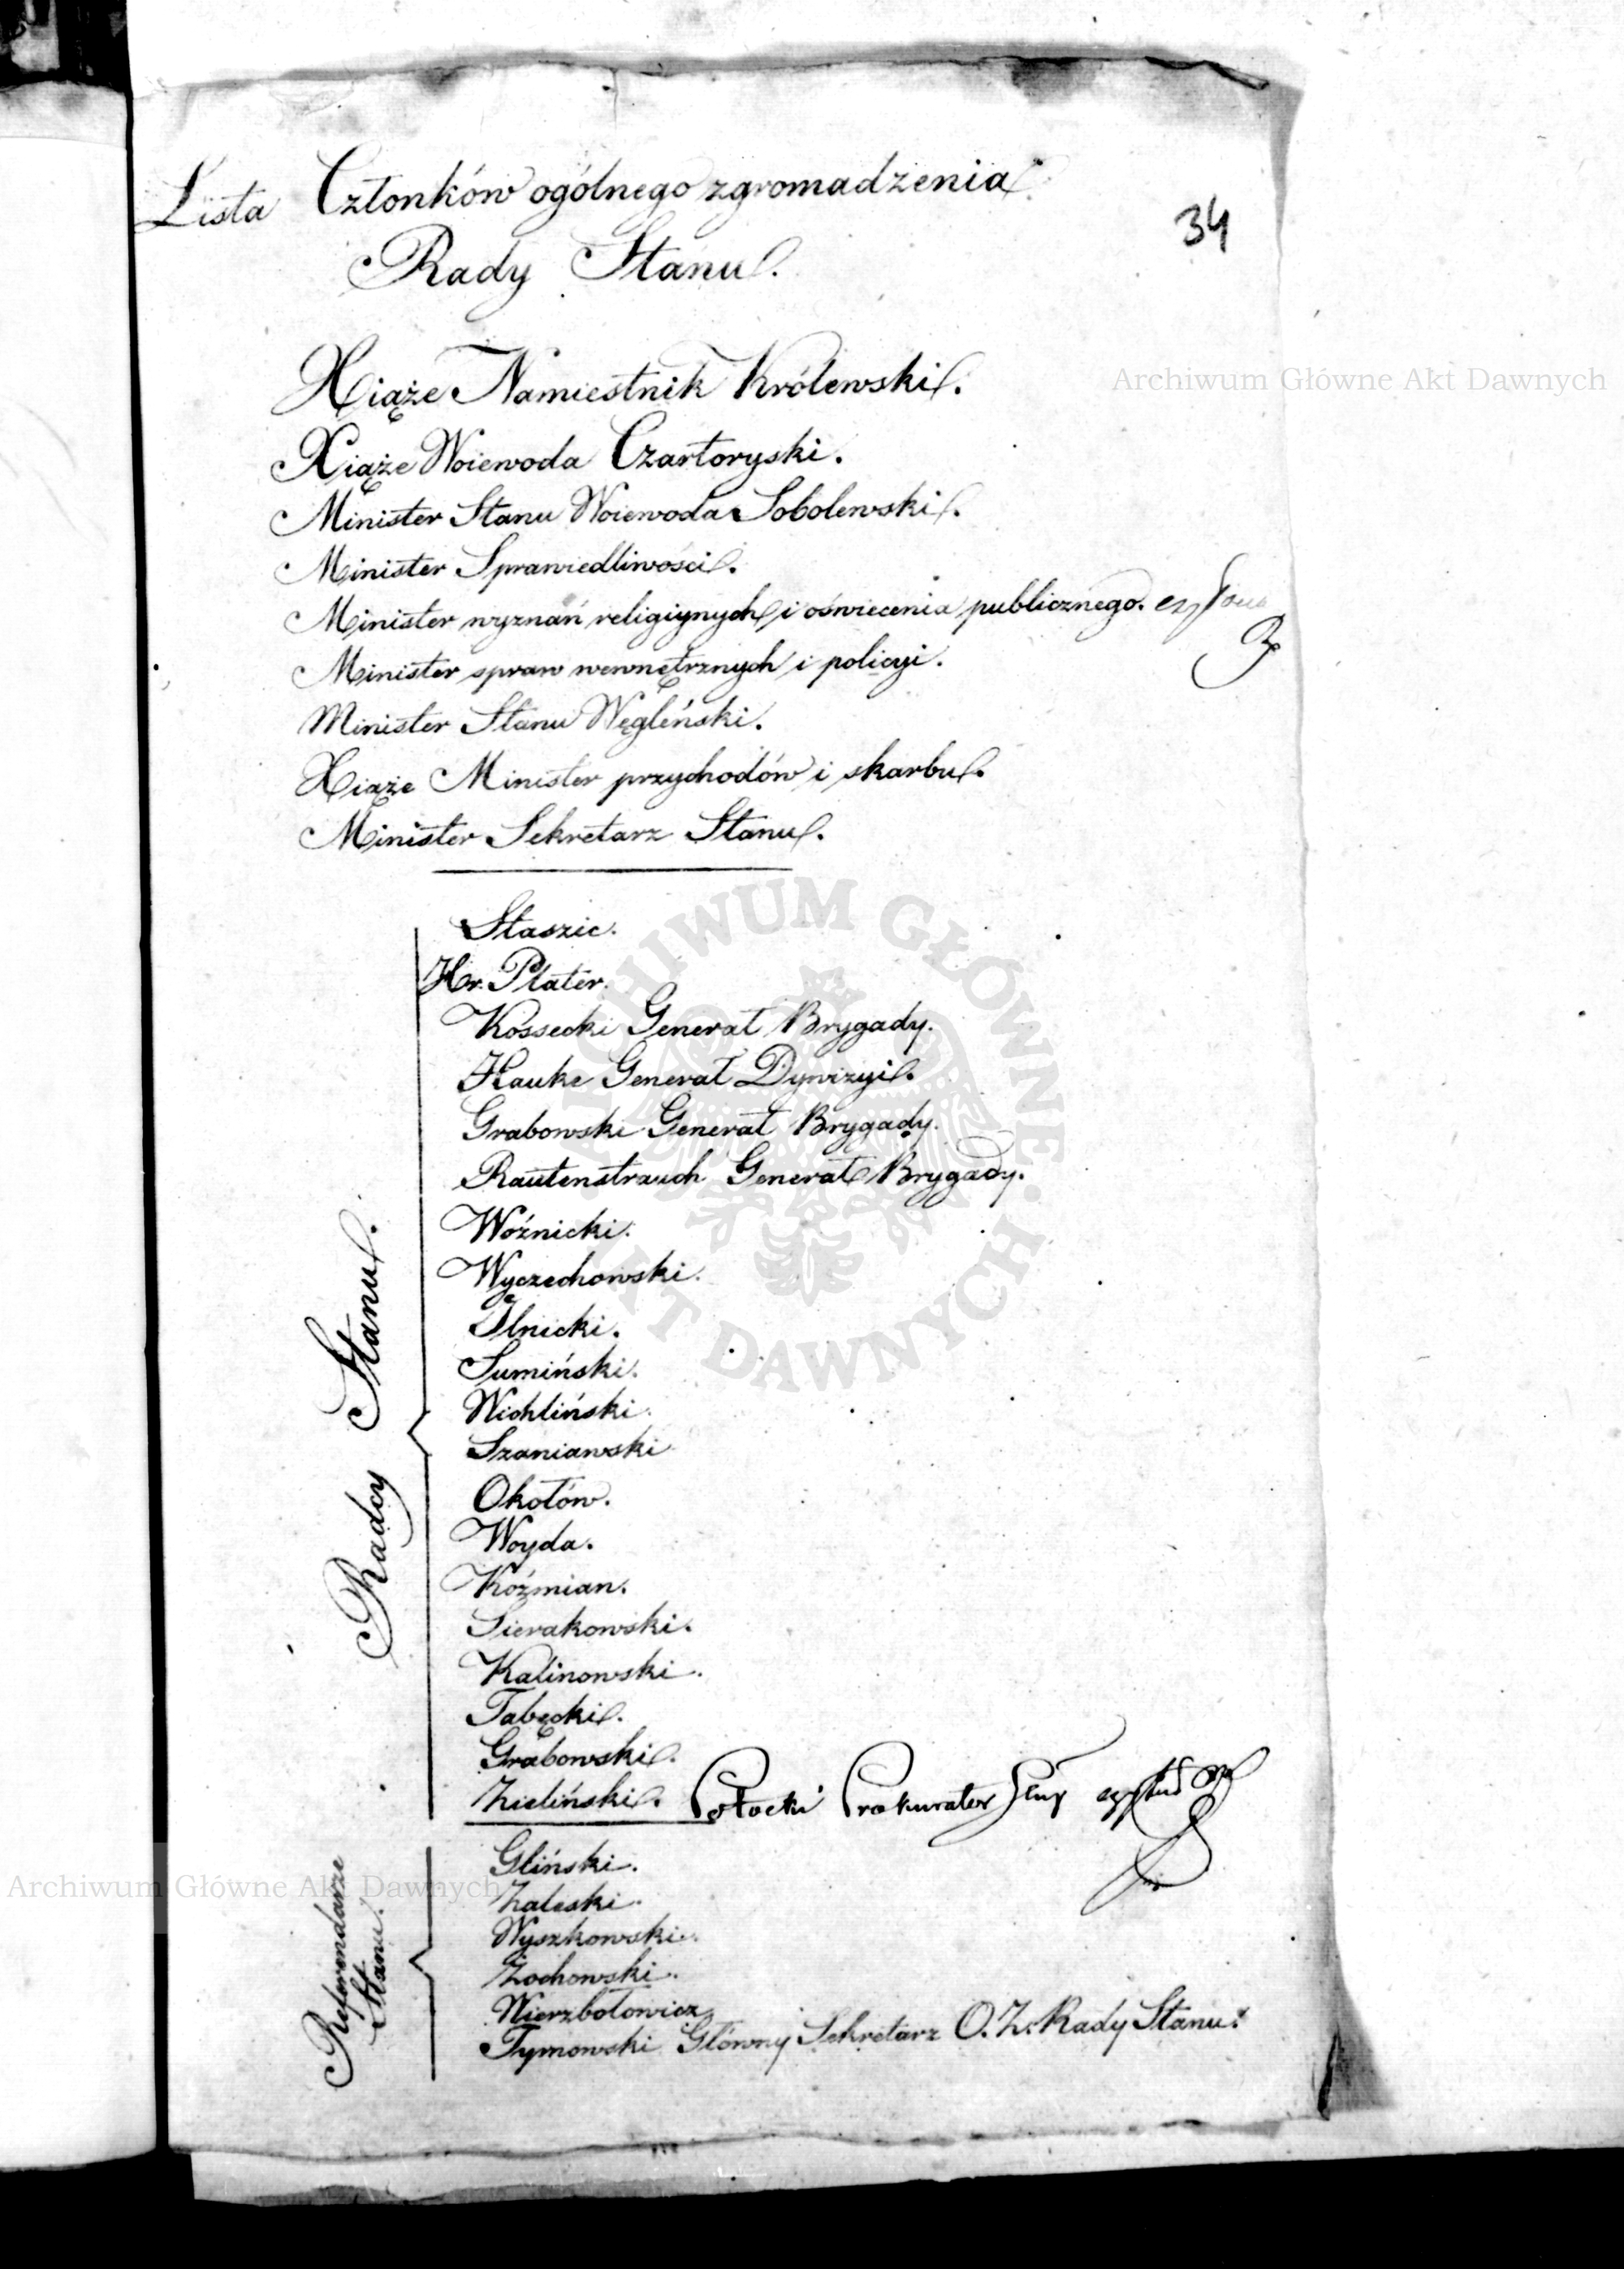 Lista Członków ogólnego zgromadzenia
Rady Stanu.
34
Xiąże Namiestnik Królewski.
Xiąże Woiewoda Czartoryski.
Minister Stanu Woiewoda Sobolewski.
Minister Sprawiedliwości.
Minister wyznań religiynych i oświecenia publicznego.
Minister spraw wewnętrznych i policyi.
Minister Stanu Węgleński.
Xiąże Minister przychodów i skarbu.
Minister Sekretarz Stanu.
Radcy Stanu.
Staszic.
Hr. Plater.
Kossecki Generał Brygady.
Hauke Generał Dywizyi.
Grabowski Generał Brygady.
Rautenstrauch Generał Brygady.
Woźnicki.
Wyczechowski.
Ilnicki.
Sumiński.
Wichliński.
Szaniawski
Okołów.
Woyda.
Koźmian.
Sierakowski.
Kalinowski.
Tabęcki.
Grabowski.
Zieliński. Potocki Prokurator
Referendarze
Stanu.
Gliński.
Zaleski.
Wyszkowski.
Zochowski.
Wierzbołowicz
Tymowski Główny Sekretarz O. Z. Rady Stanu.
Archiwum Główne Akt Dawnych
Archiwum Główne Akt Dawnych
ARCHIWUM GŁÓWNE AKT DAWNYCH